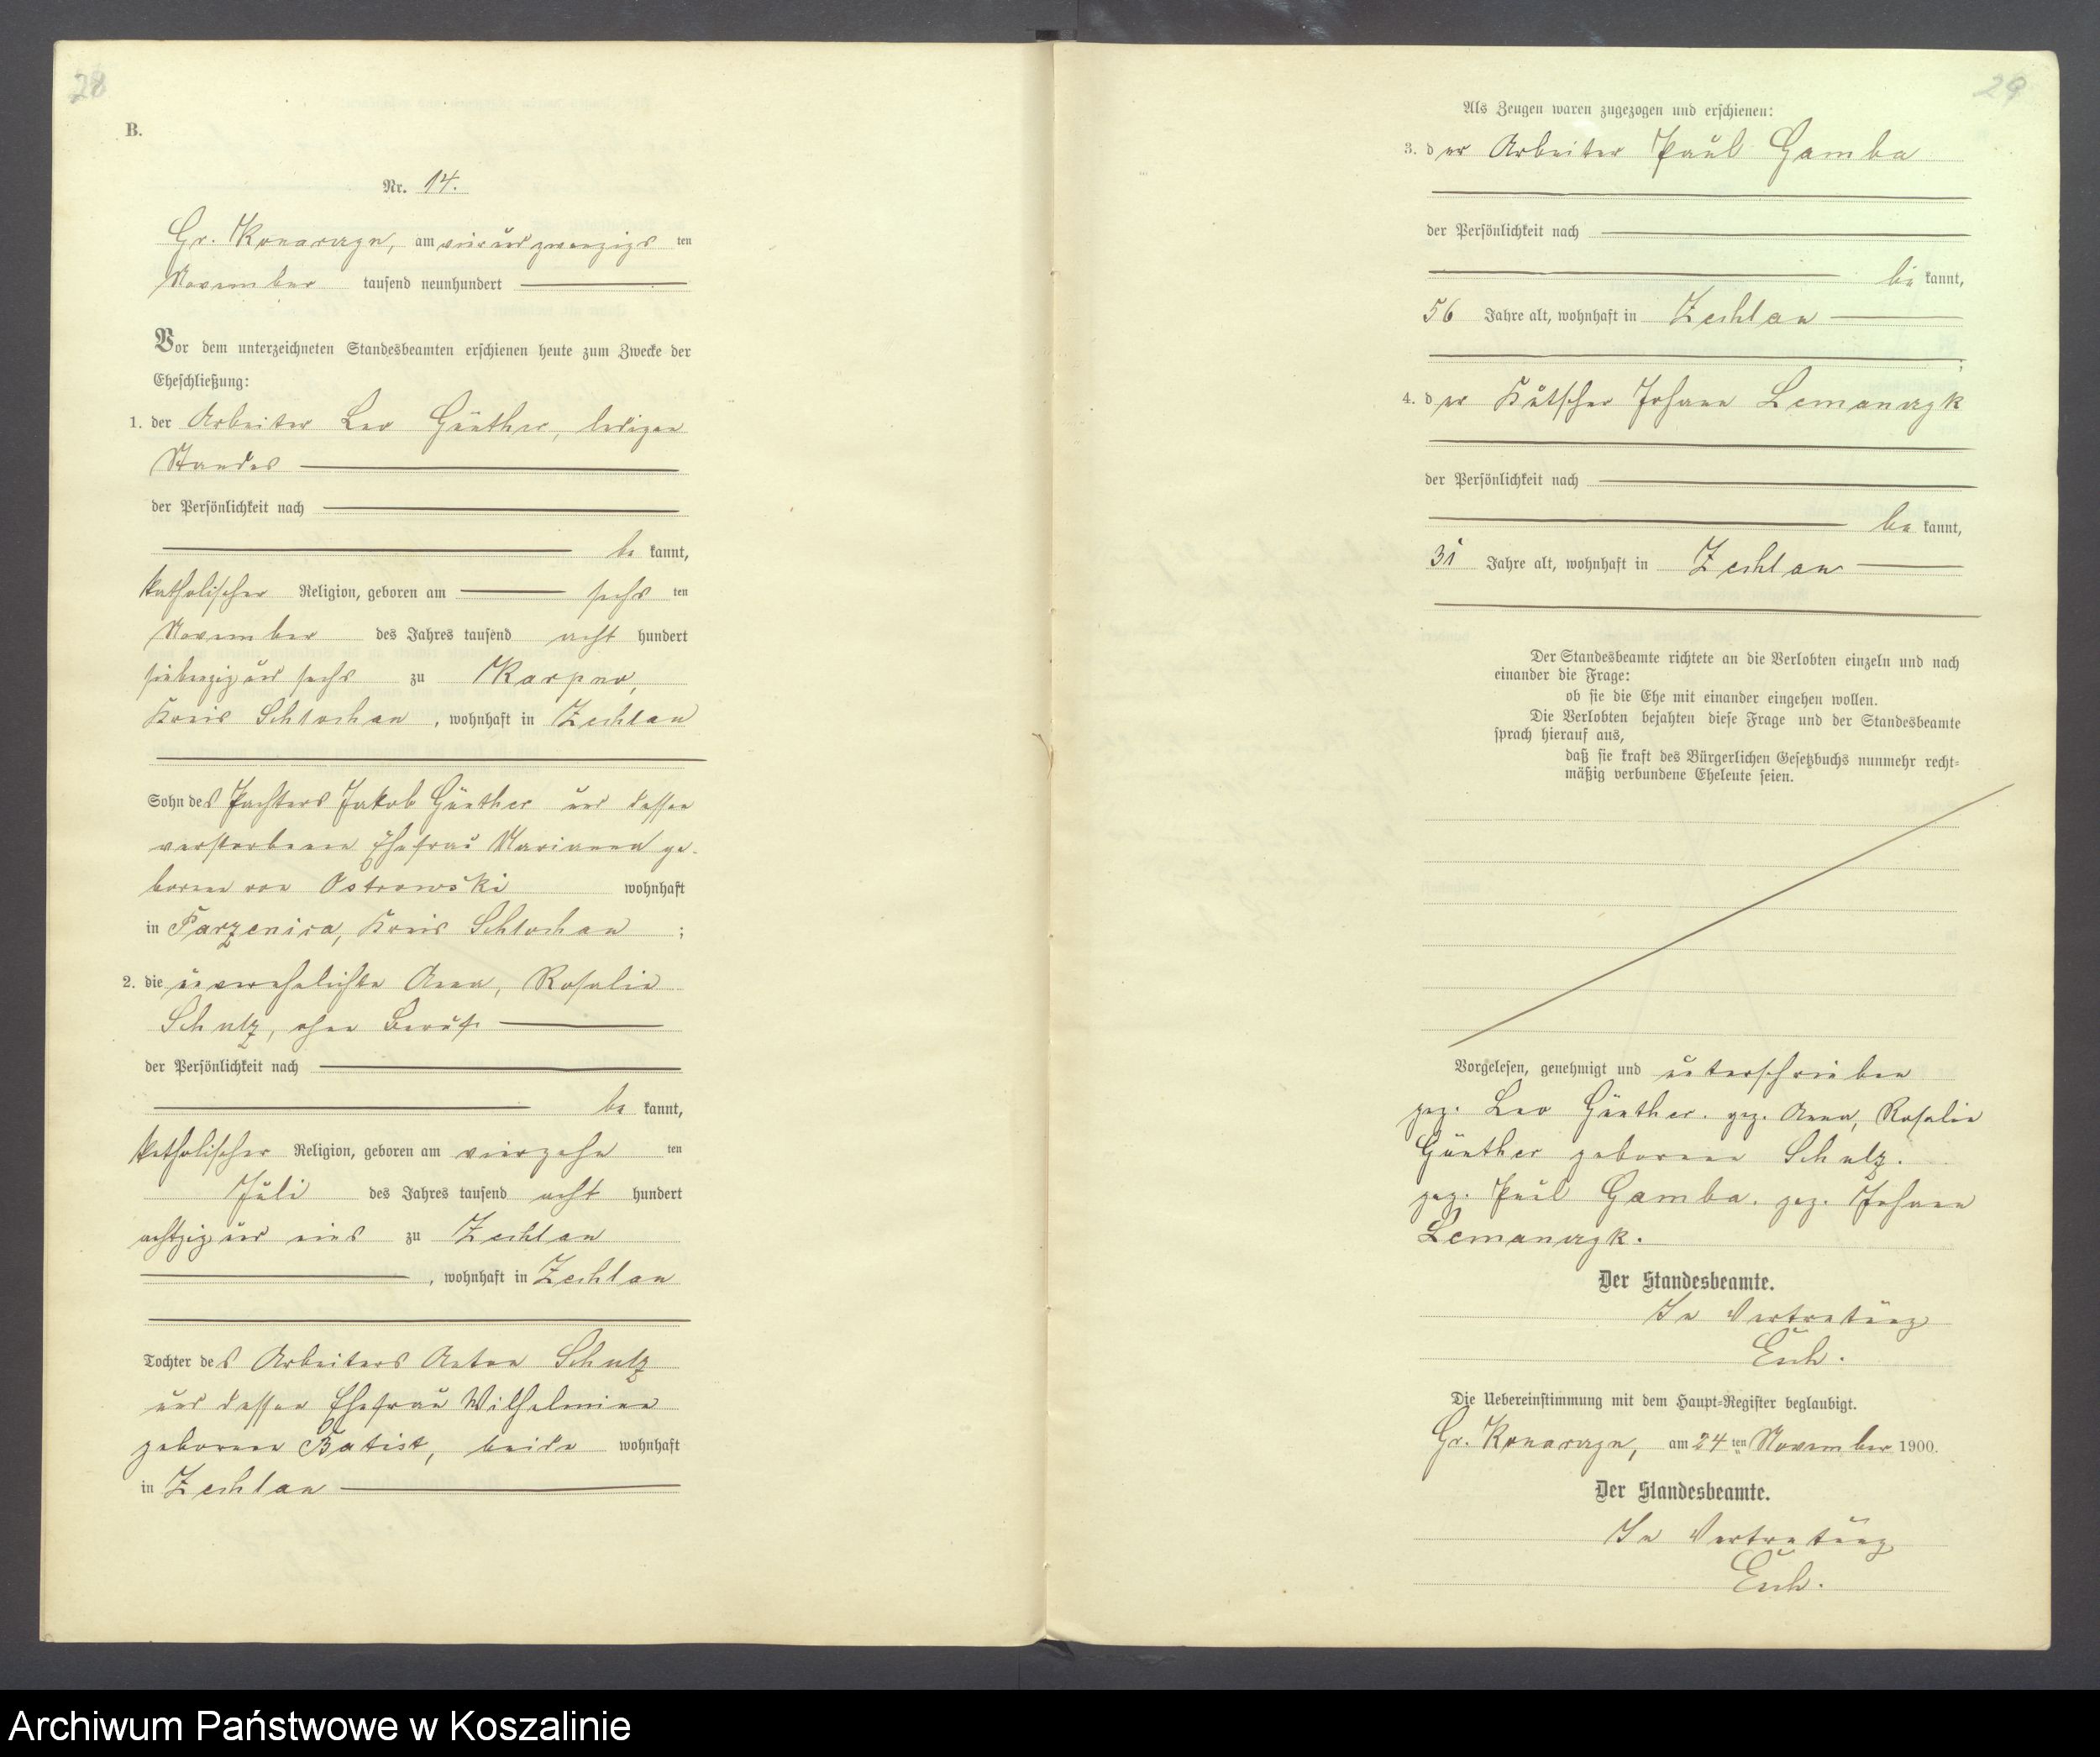 28
B.
Nr. 14.
Gr. Konarczyn, am vierundzwanzigs ten
November tausend neunhundert
Vor dem unterzeichneten Standesbeamten erschienen heute zum Zwecke der
Eheschließung:
1. der Arbeiter Leo Günther, ledigen
Standes
der Persönlichkeit nach
be kannt,
katholischer Religion, geboren am sechs ten
November des Jahres tausend acht hundert
siebenzig und sechs zu Karpno,
Kreis Schlochau, wohnhaft in Zechlau
Sohn des Pächters Jakob Günther und dessen
verstorbenen Ehefrau Marianna ge-
borene von Ostrowski wohnhaft
in Parzenica, Kreis Schlochau ;
2. die unverehelichte Anna, Rosalie
Schulz, ohne Beruf
der Persönlichkeit nach
be kannt,
katholischer Religion, geboren am vierzehn ten
Juli des Jahres tausend acht hundert
achtzig und eins zu Zechlau
, wohnhaft in Zechlau
Tochter des Arbeiters Anton Schulz
und dessen Ehefrau Wilhelmine
geborene Batist, beide wohnhaft
in Zechlau
29
Als Zeugen waren zugezogen und erschienen:
3. der Arbeiter Paul Gamba
der Persönlichkeit nach
be kannt,
56 Jahre alt, wohnhaft in Zechlau
;
4. der Kutscher Johann Lemanczyk
der Persönlichkeit nach
be kannt,
31 Jahre alt, wohnhaft in Zechlau
Der Standesbeamte richtete an die Verlobten einzeln und nach
einander die Frage:
ob sie die Ehe mit einander eingehen wollen.
Die Verlobten bejahten diese Frage und der Standesbeamte
sprach hierauf aus,
daß sie kraft des Bürgerlichen Gesetzbuchs nunmehr recht-
mäßig verbundene Eheleute seien.
Vorgelesen, genehmigt und unterschrieben
gez. Leo Günther. gez. Anna, Rosalie
Günther geborene Schulz.
gez. Paul Gamba. gez. Johann
Lemanczyk.
Der Standesbeamte.
In Vertretung
Esch.
Die Uebereinstimmung mit dem Haupt-Register beglaubigt.
Gr. Konarczyn, am 24 ten November 1900.
Der Standesbeamte.
In Vertretung
Esch.
Archiwum Państwowe w Koszalinie